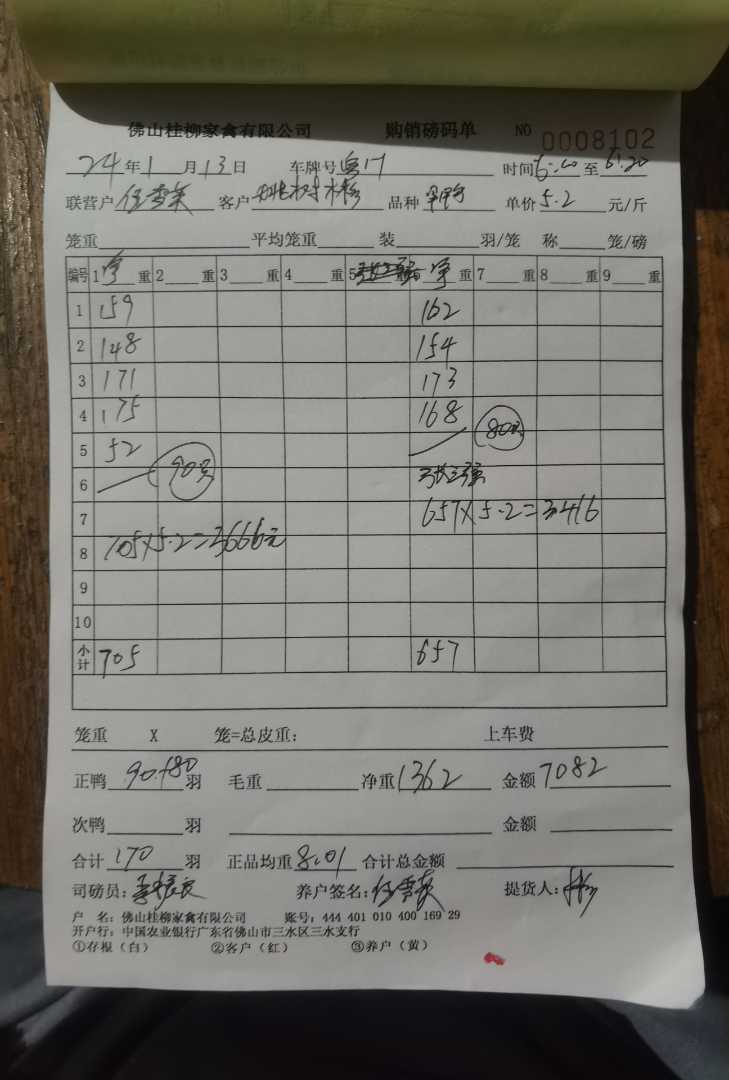 佛山桂柳家禽有限公司 购销磅码单 NO 0008102
24年1月13日 车牌号 粤17 时间6:00至6:20
联营户 客户 树 品种 单价5.2元/斤
笼重 平均笼重 装 羽/笼 称 笼/磅
编号 1净重 2 重 3 重 4 重 5 净重 7 重 8 重 9 重
1 159 162
2 148 154
3 171 173
4 175 168 80只
5 52
6 90只
7 657×5.2=3416
8 705×5.2=3666元
9
10
小计 705 657
笼重 X 笼=总皮重： 上车费
正鸭 90+80 羽 毛重 净重 1362 金额 7082
次鸭 羽 金额
合计 170 羽 正品均重 8.01 合计总金额
司磅员： 养户签名： 提货人：
户 名：佛山桂柳家禽有限公司 账号：444 401 010 400 169 29
开户行：中国农业银行广东省佛山市三水区三水支行
①存根（白） ②客户（红） ③养户（黄）